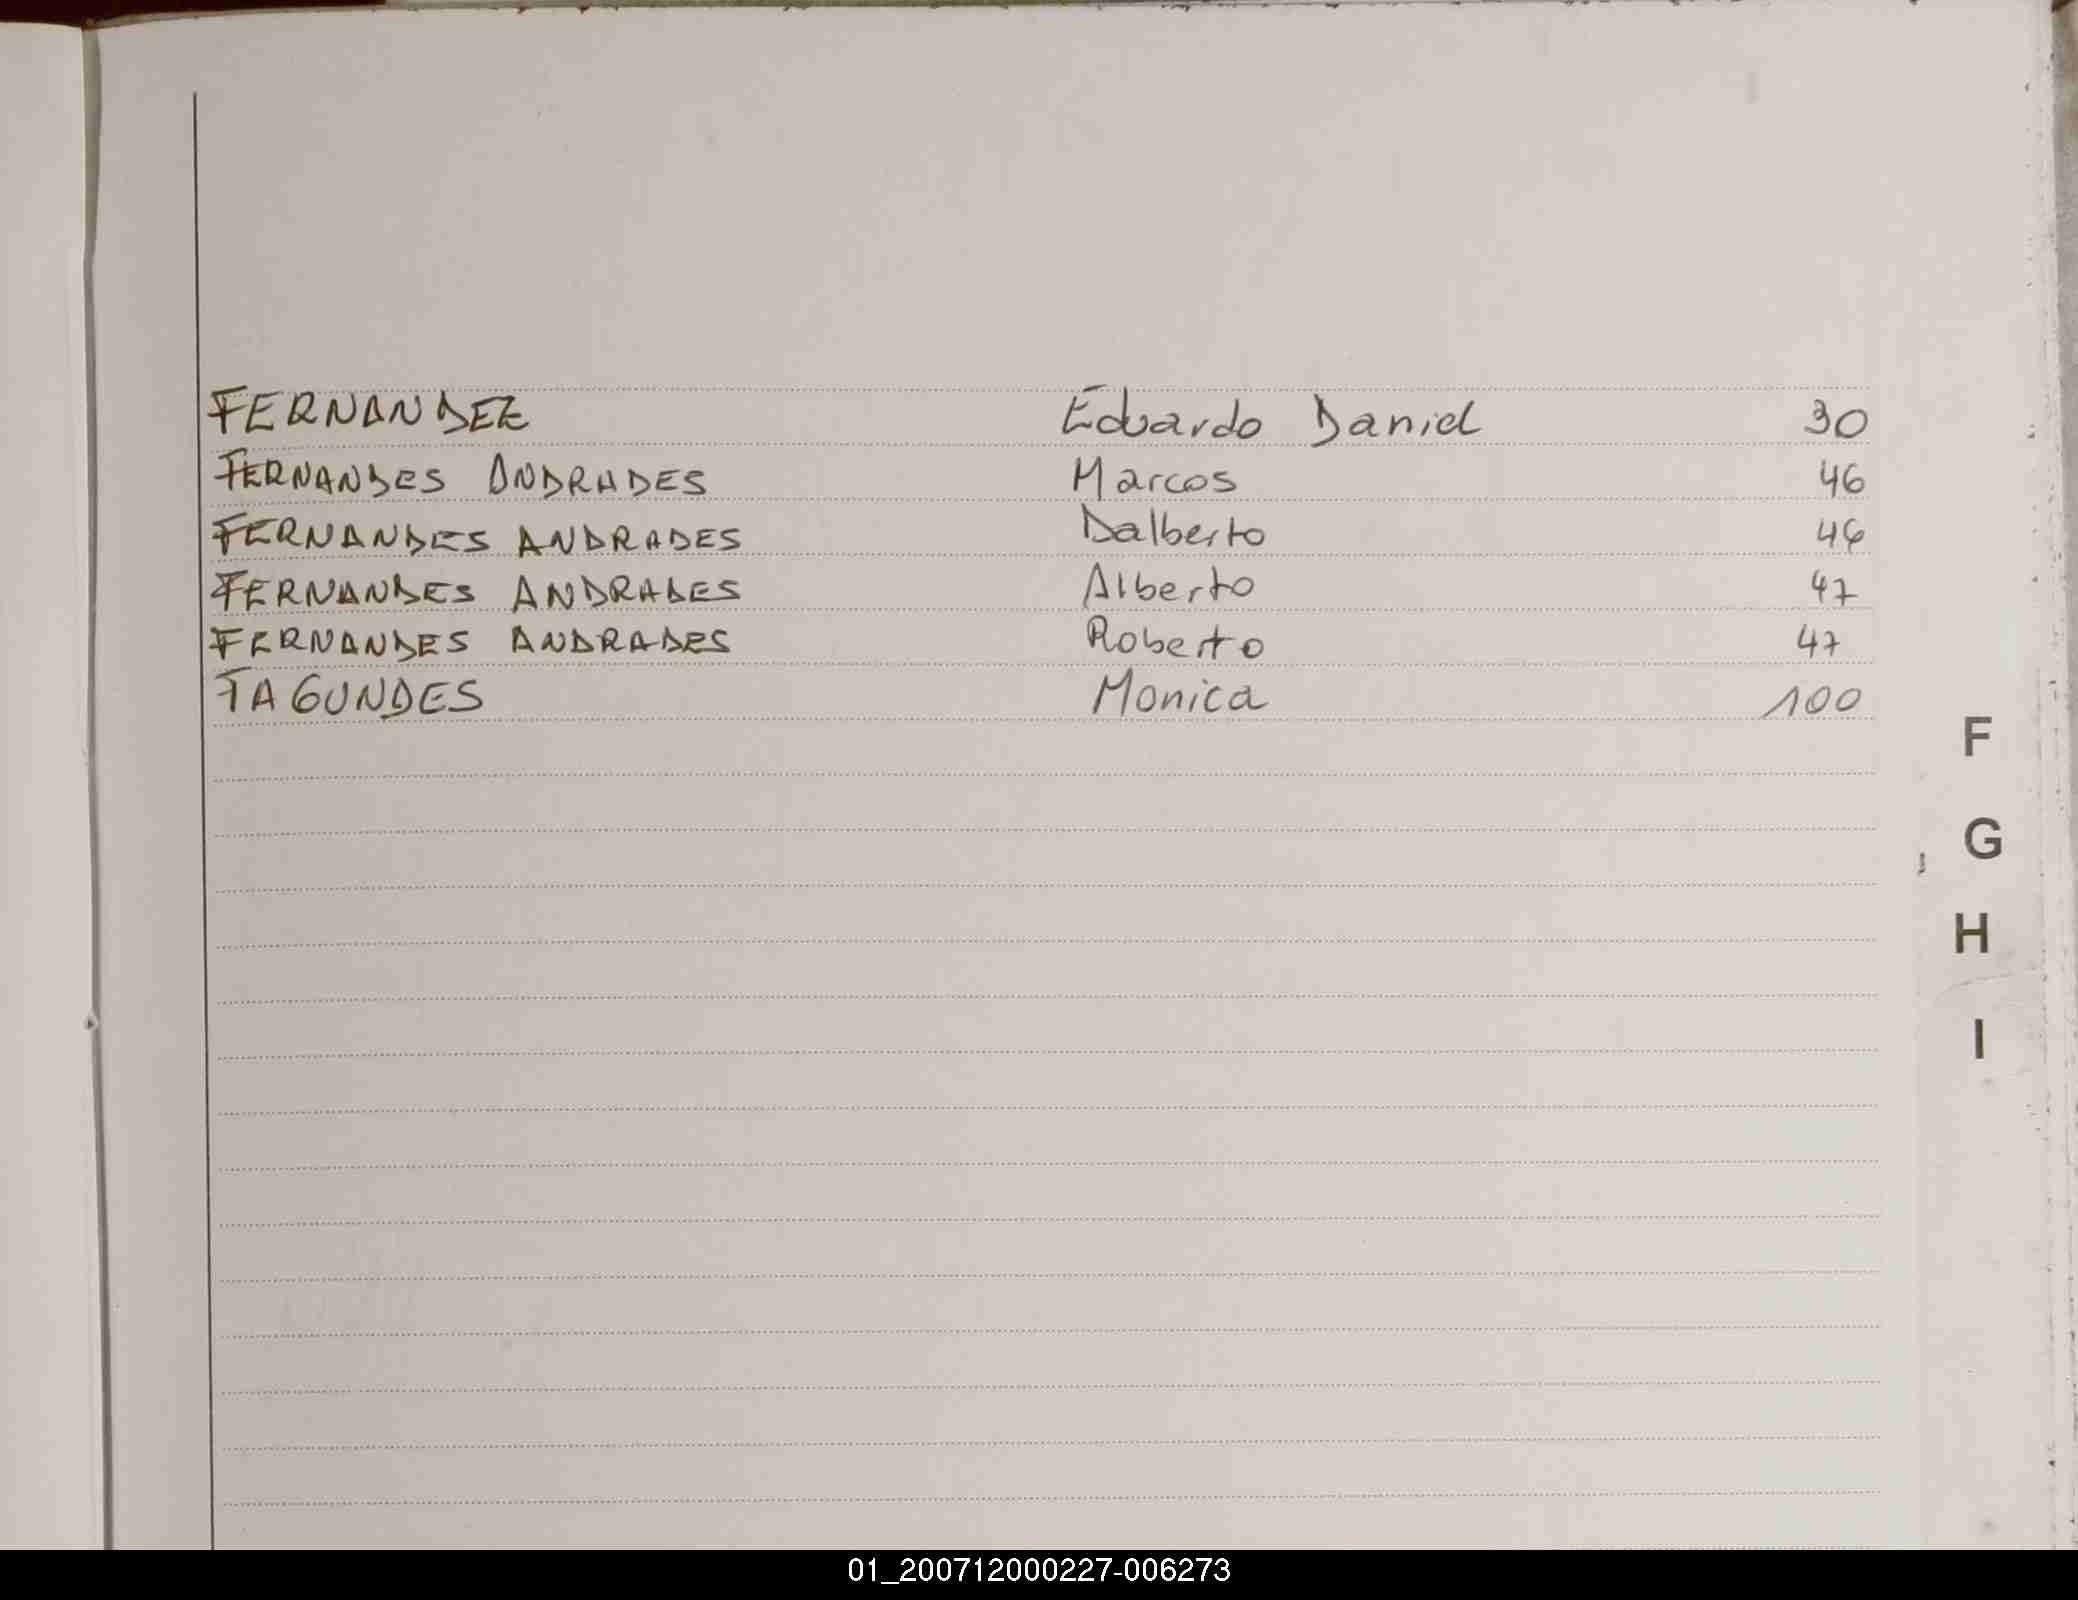 FERNANDEZ Eduardo Daniel 30
FERNANDES ANDRADES Marcos 46
FERNANDES ANDRADES Dalberto 46
FERNANDES ANDRADES Alberto 47
FERNANDES ANDRADES Roberto 47
FAGUNDES Monica 100
F
G
H
I
01_200712000227-006273